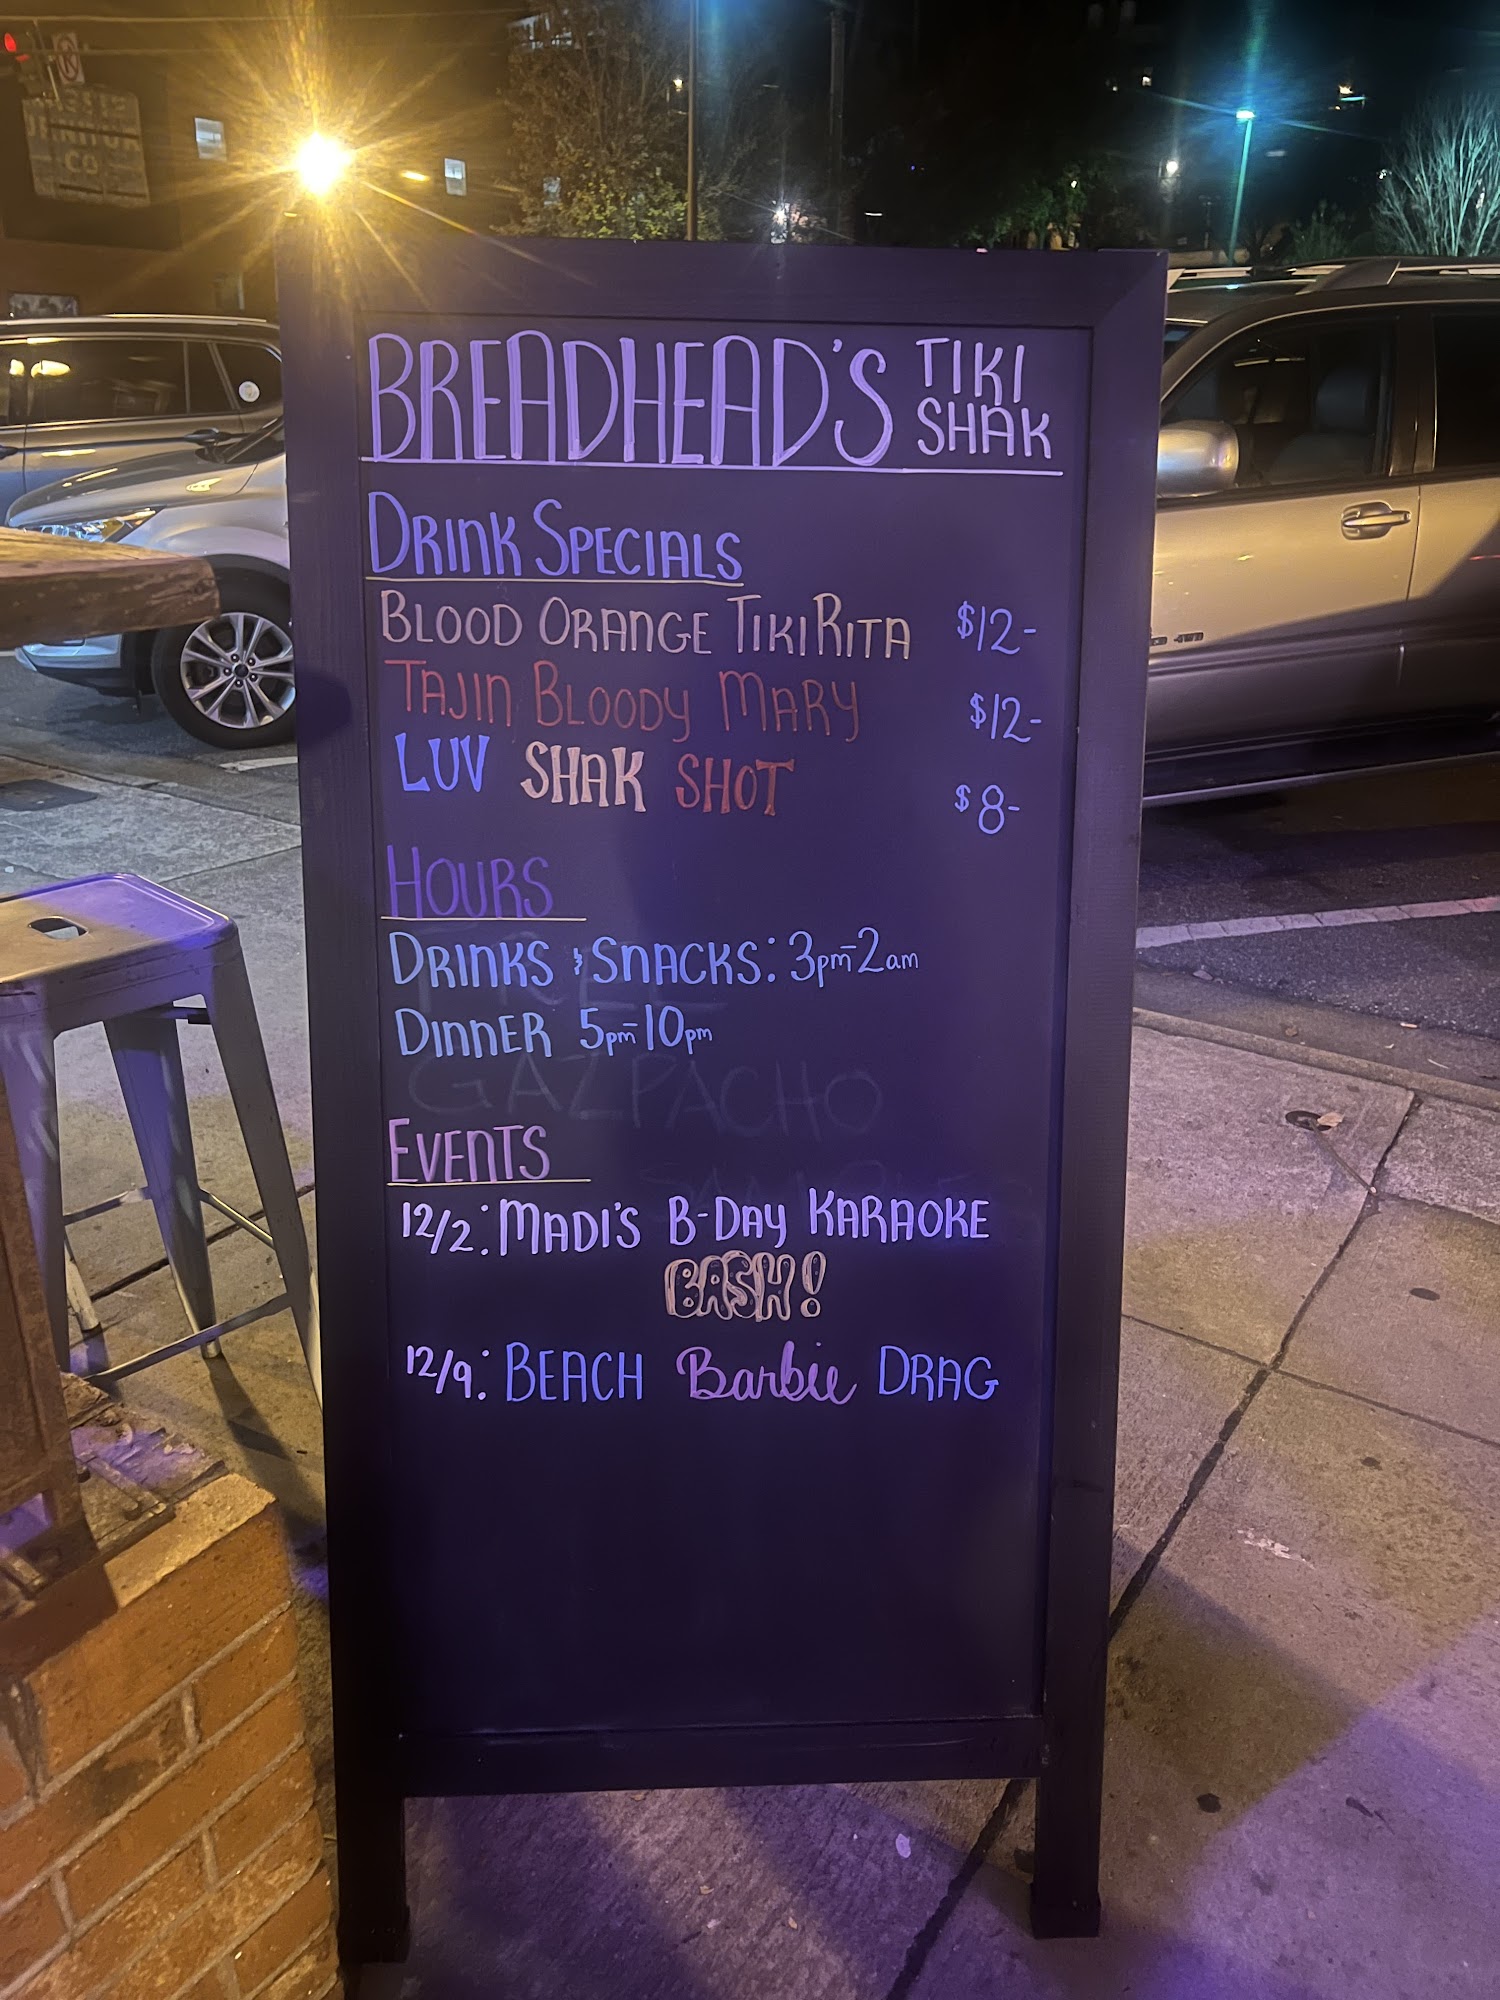 BREADHEAD'S TIKI SHAK
DRINK SPECIALS
BLOOD ORANGE TIKIRITA $12-
TAJIN BLOODY MARY $12-
LUV SHAK SHOT $8-
HOURS
DRINKS & SNACKS: 3pm-2am
DINNER 5pm-10pm
FREE
GAZPACHO
EVENTS
12/2: MADI'S B-DAY KARAOKE
BASH!
12/9: BEACH Barbie DRAG
JANITOR
CO.
4WD